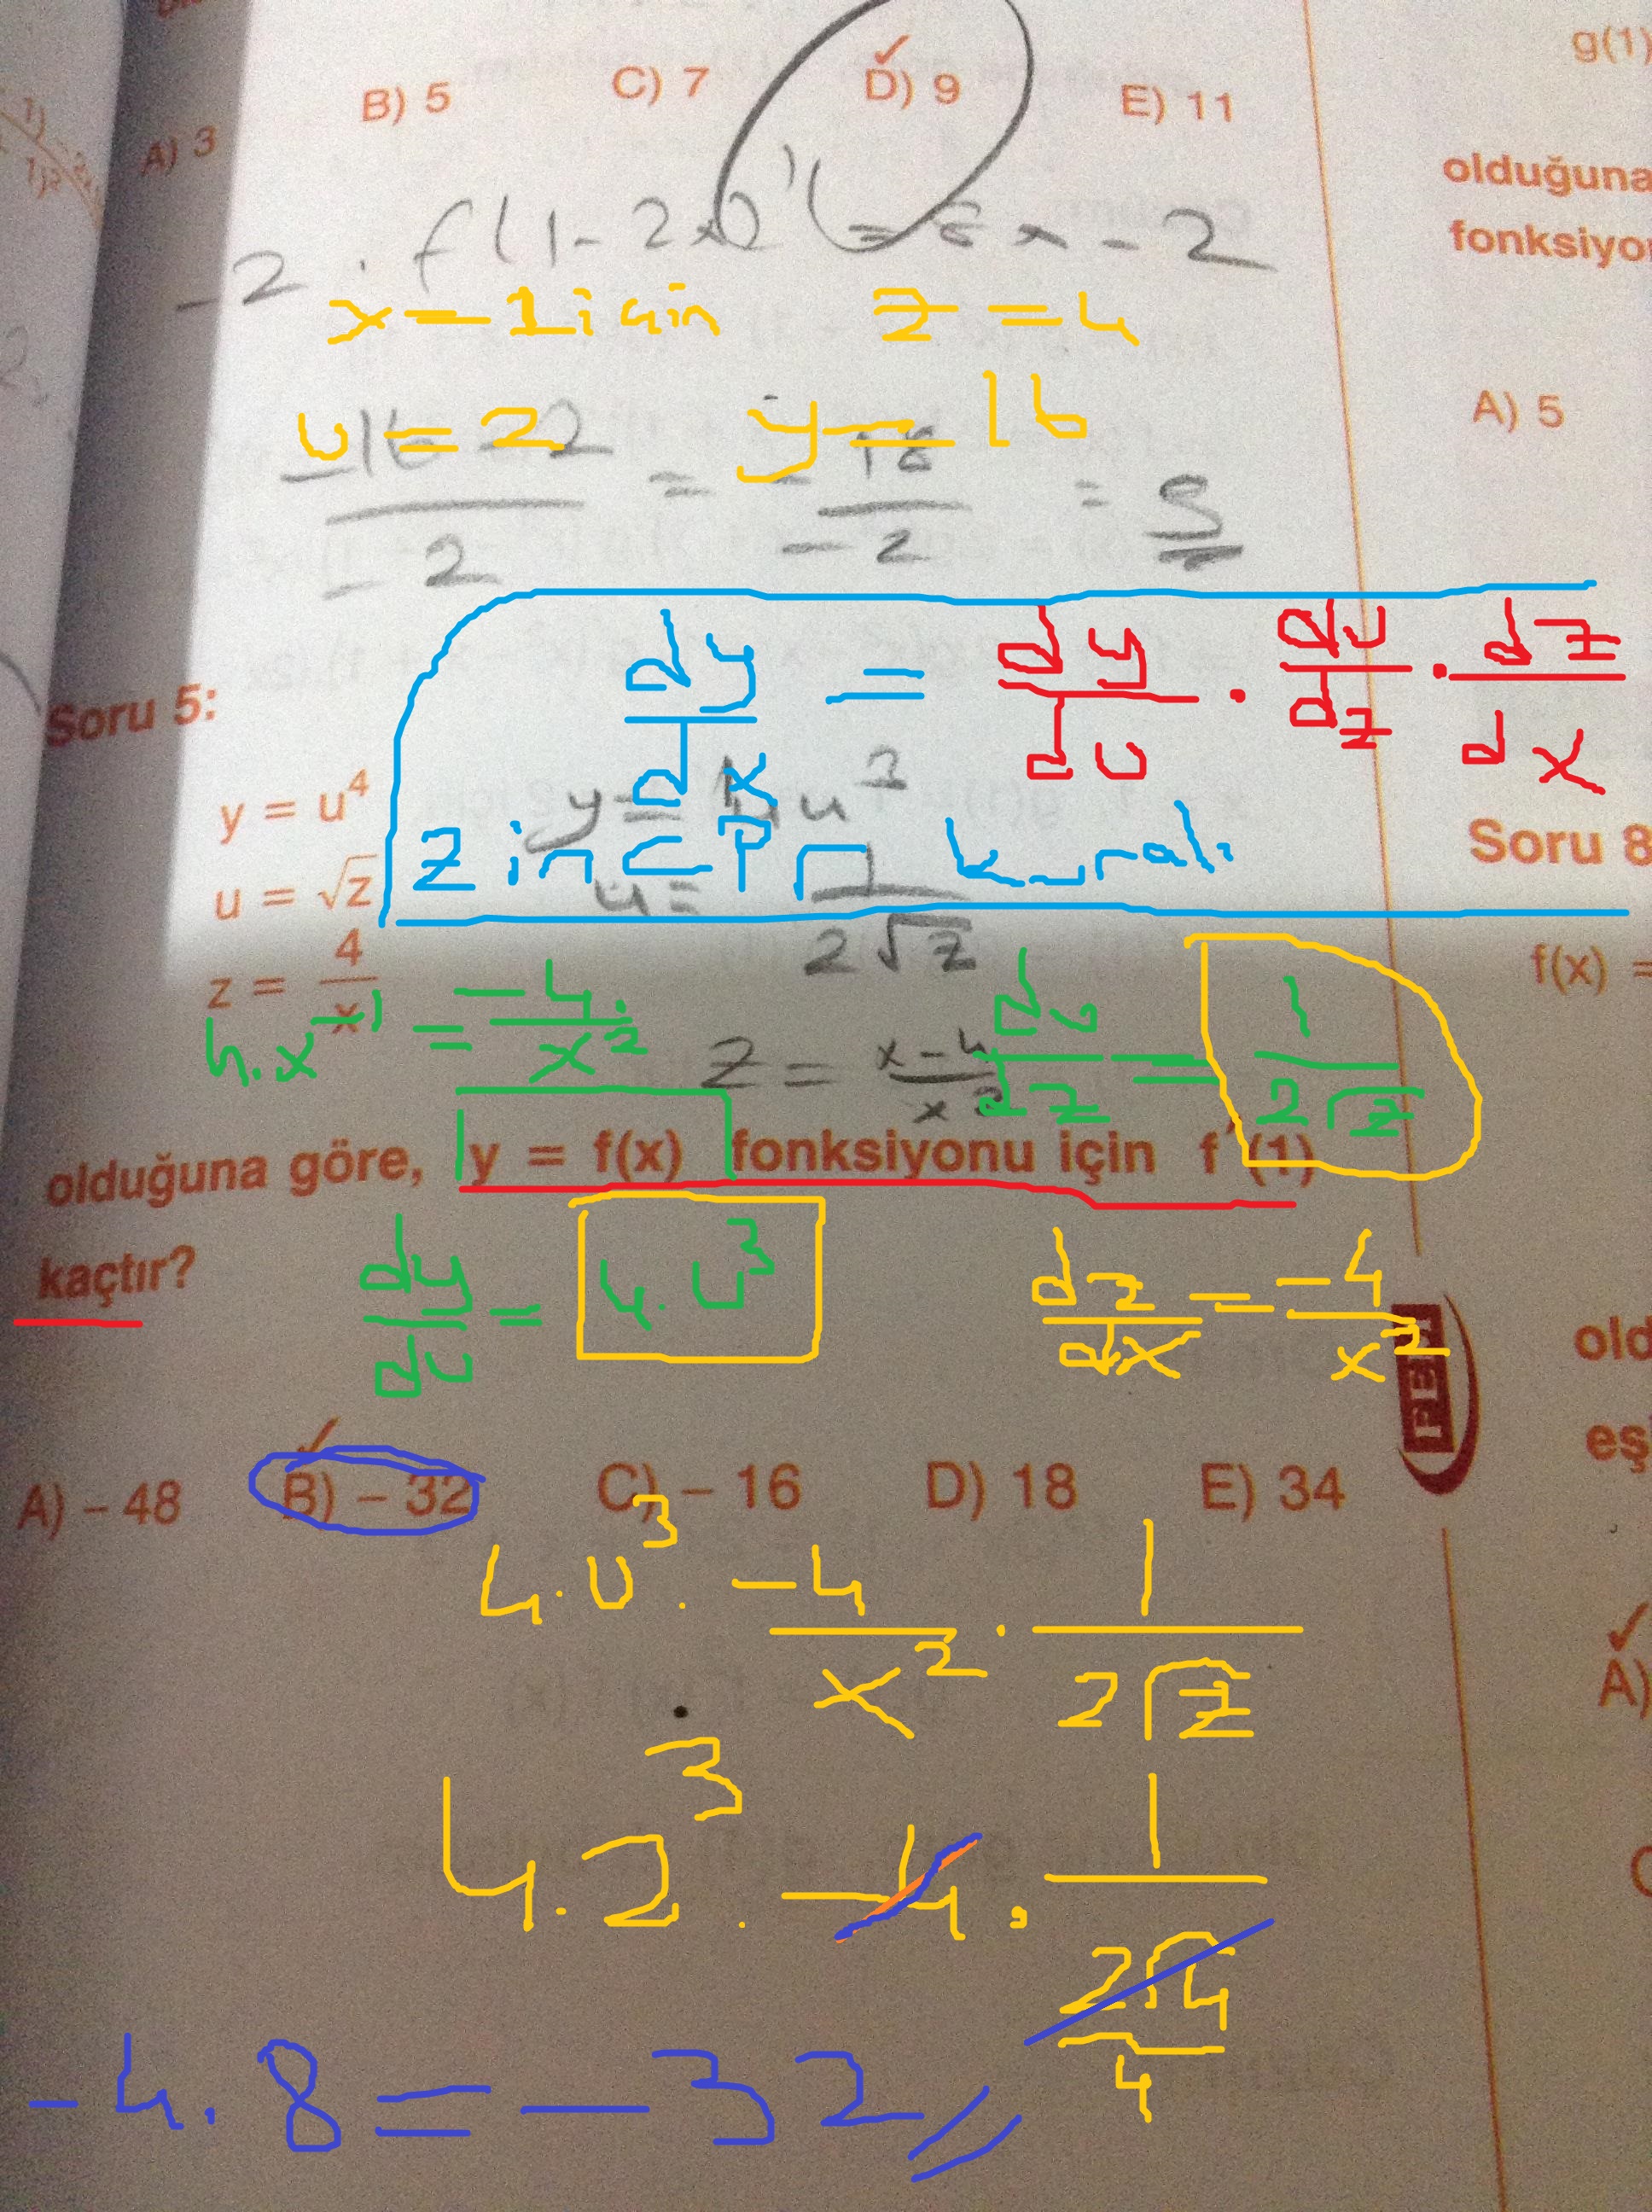 g(1)
A) 3 B) 5 C) 7 D) 9 E) 11
olduğuna
fonksiyo
-2 . f(1-2x)' = 8x - 2
x=1 için z=4
A) 5
u=2 y=16
-16-2 / -2 = -18 / -2 = 9
dy/dx = dy/du . du/dz . dz/dx
Zincir kuralı
Soru 5:
y = u⁴
u = √z
z = 4/x
y = 4u³
u = 1/2√z
4.x⁻¹ = -4/x²
z = x-4/x²
du/dz = 1/2√z
olduğuna göre, y = f(x) fonksiyonu için f'(1)
kaçtır?
dy/du = 4.u³
dz/dx = -4/x²
A) – 48 B) – 32 C) – 16 D) 18 E) 34
4.u³ . -4/x² . 1/2√z
4.2³ . -4 . 1/2√4
4
-4.8 = -32
Soru 8
f(x) =
old
eş
A)